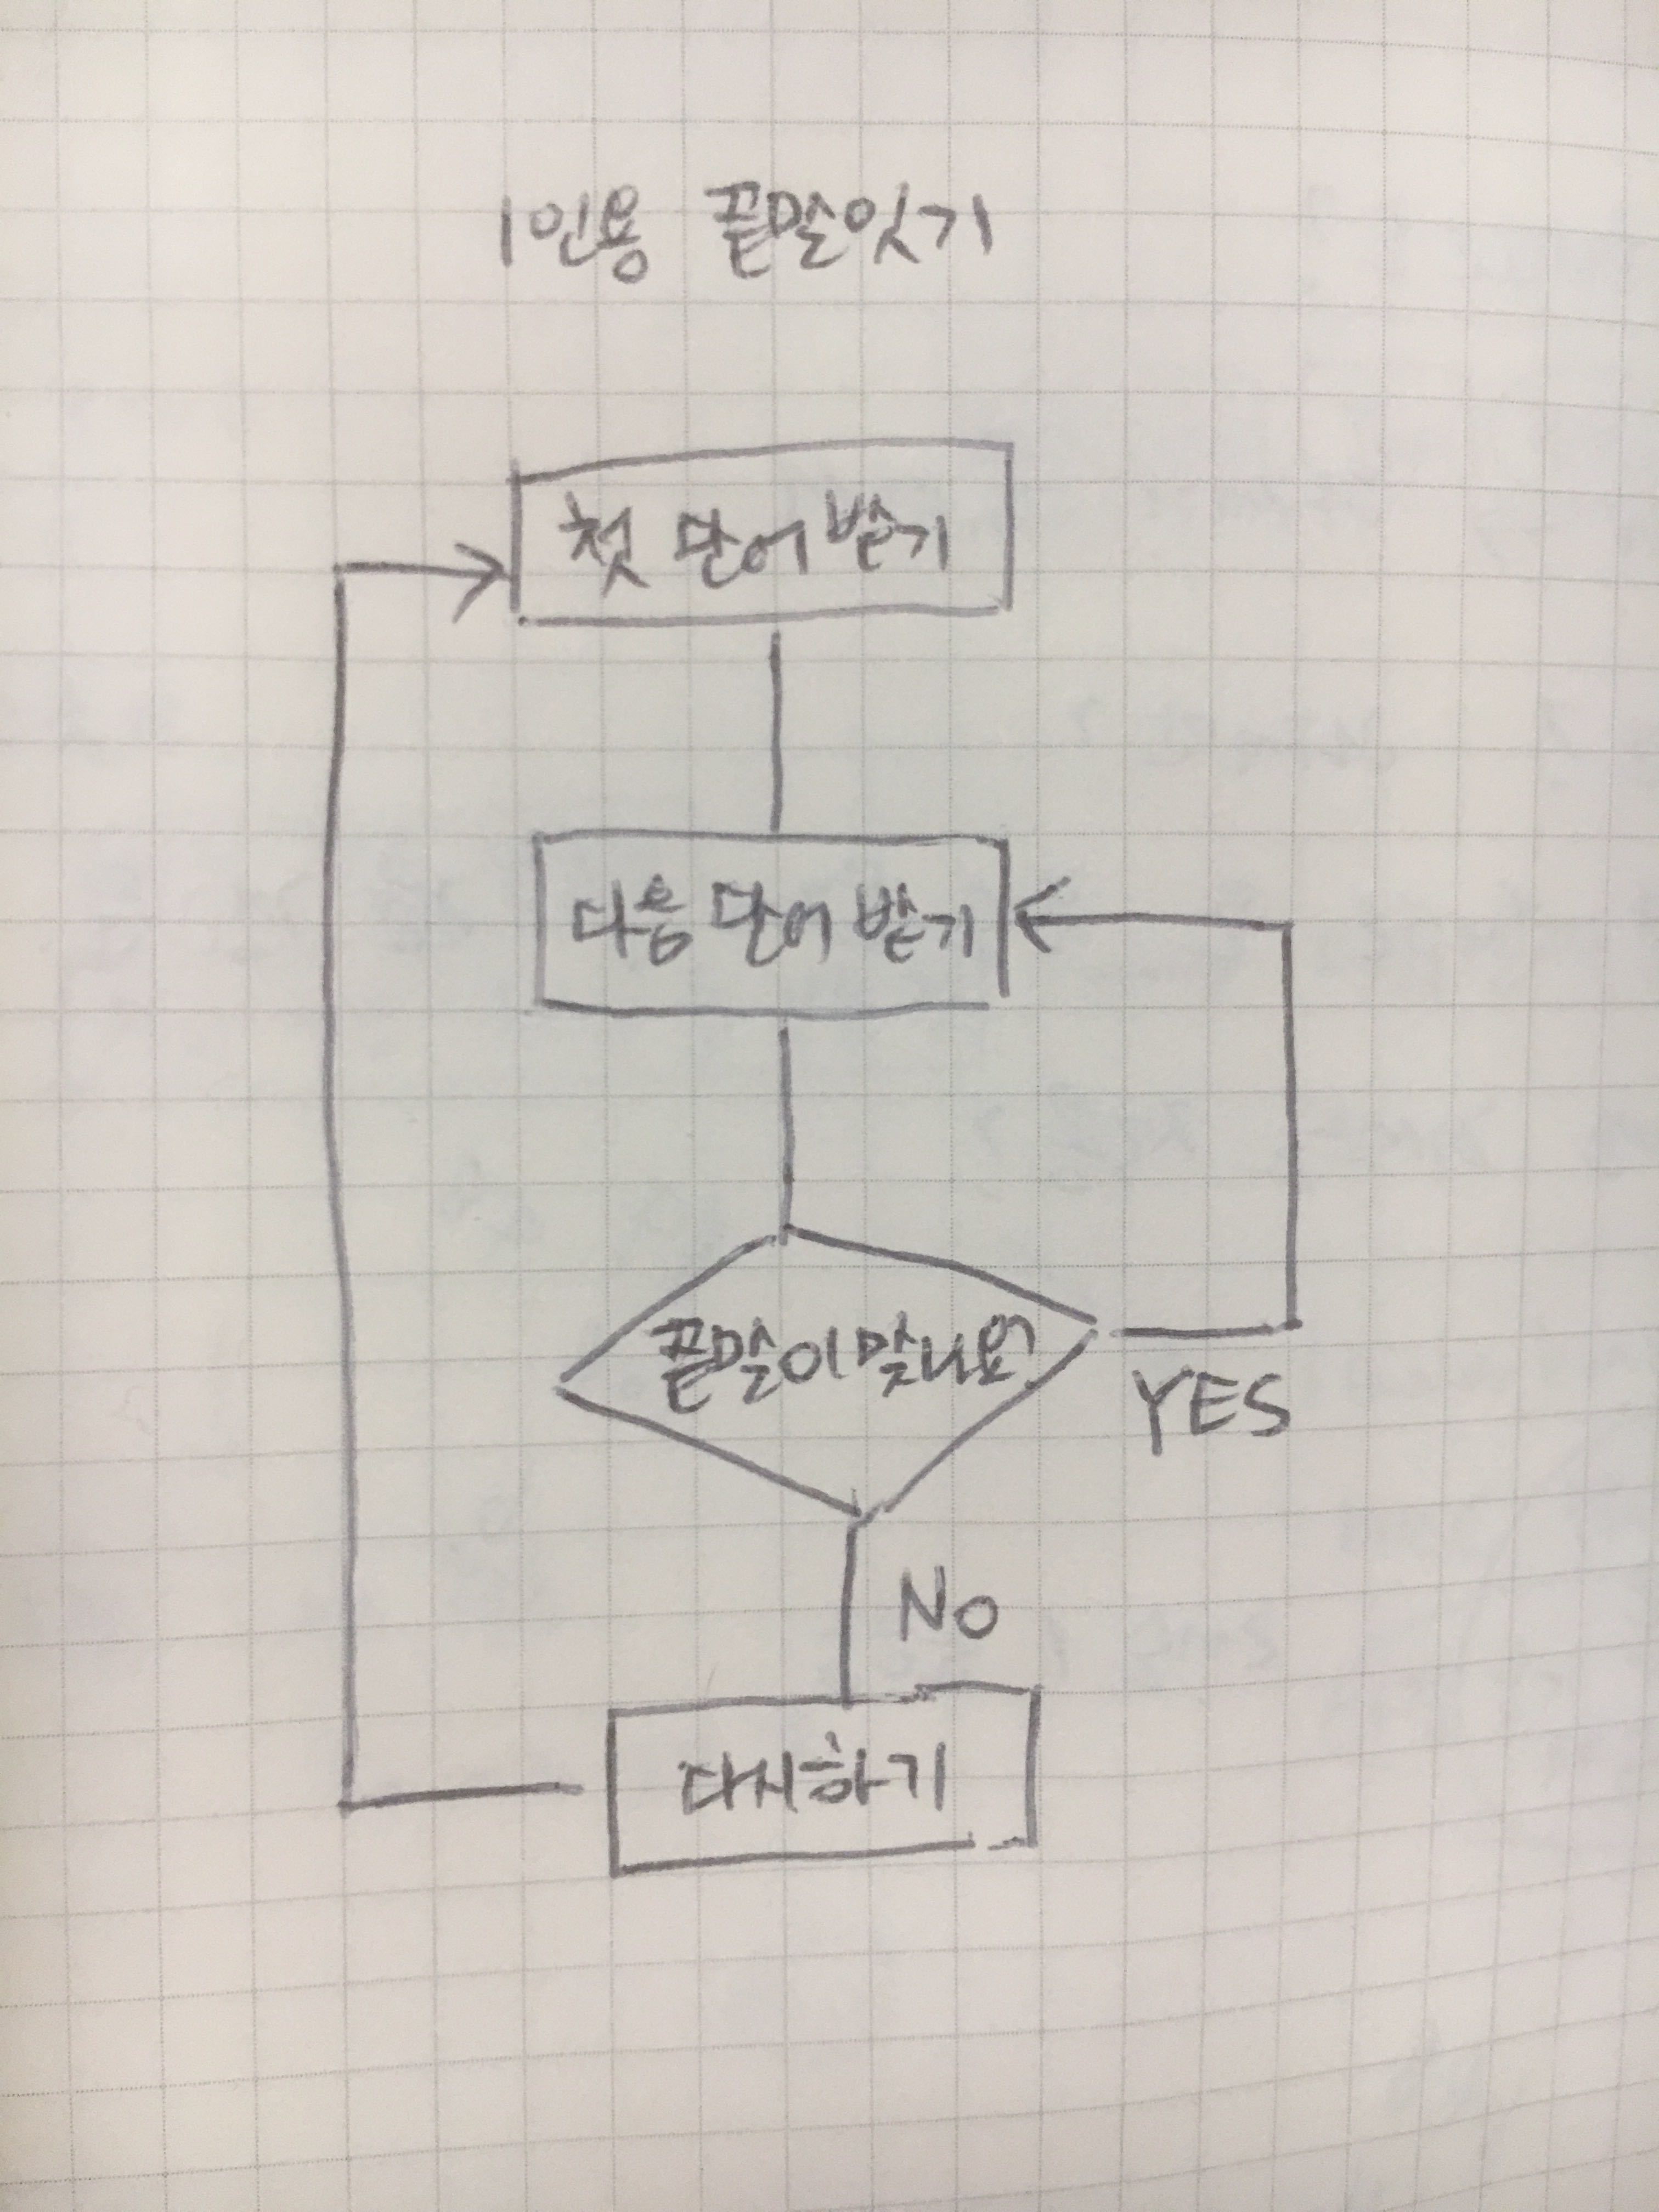 1인용 끝말잇기
첫 단어 받기
다음 단어 받기
끝말이 맞나요?
YES
NO
다시하기